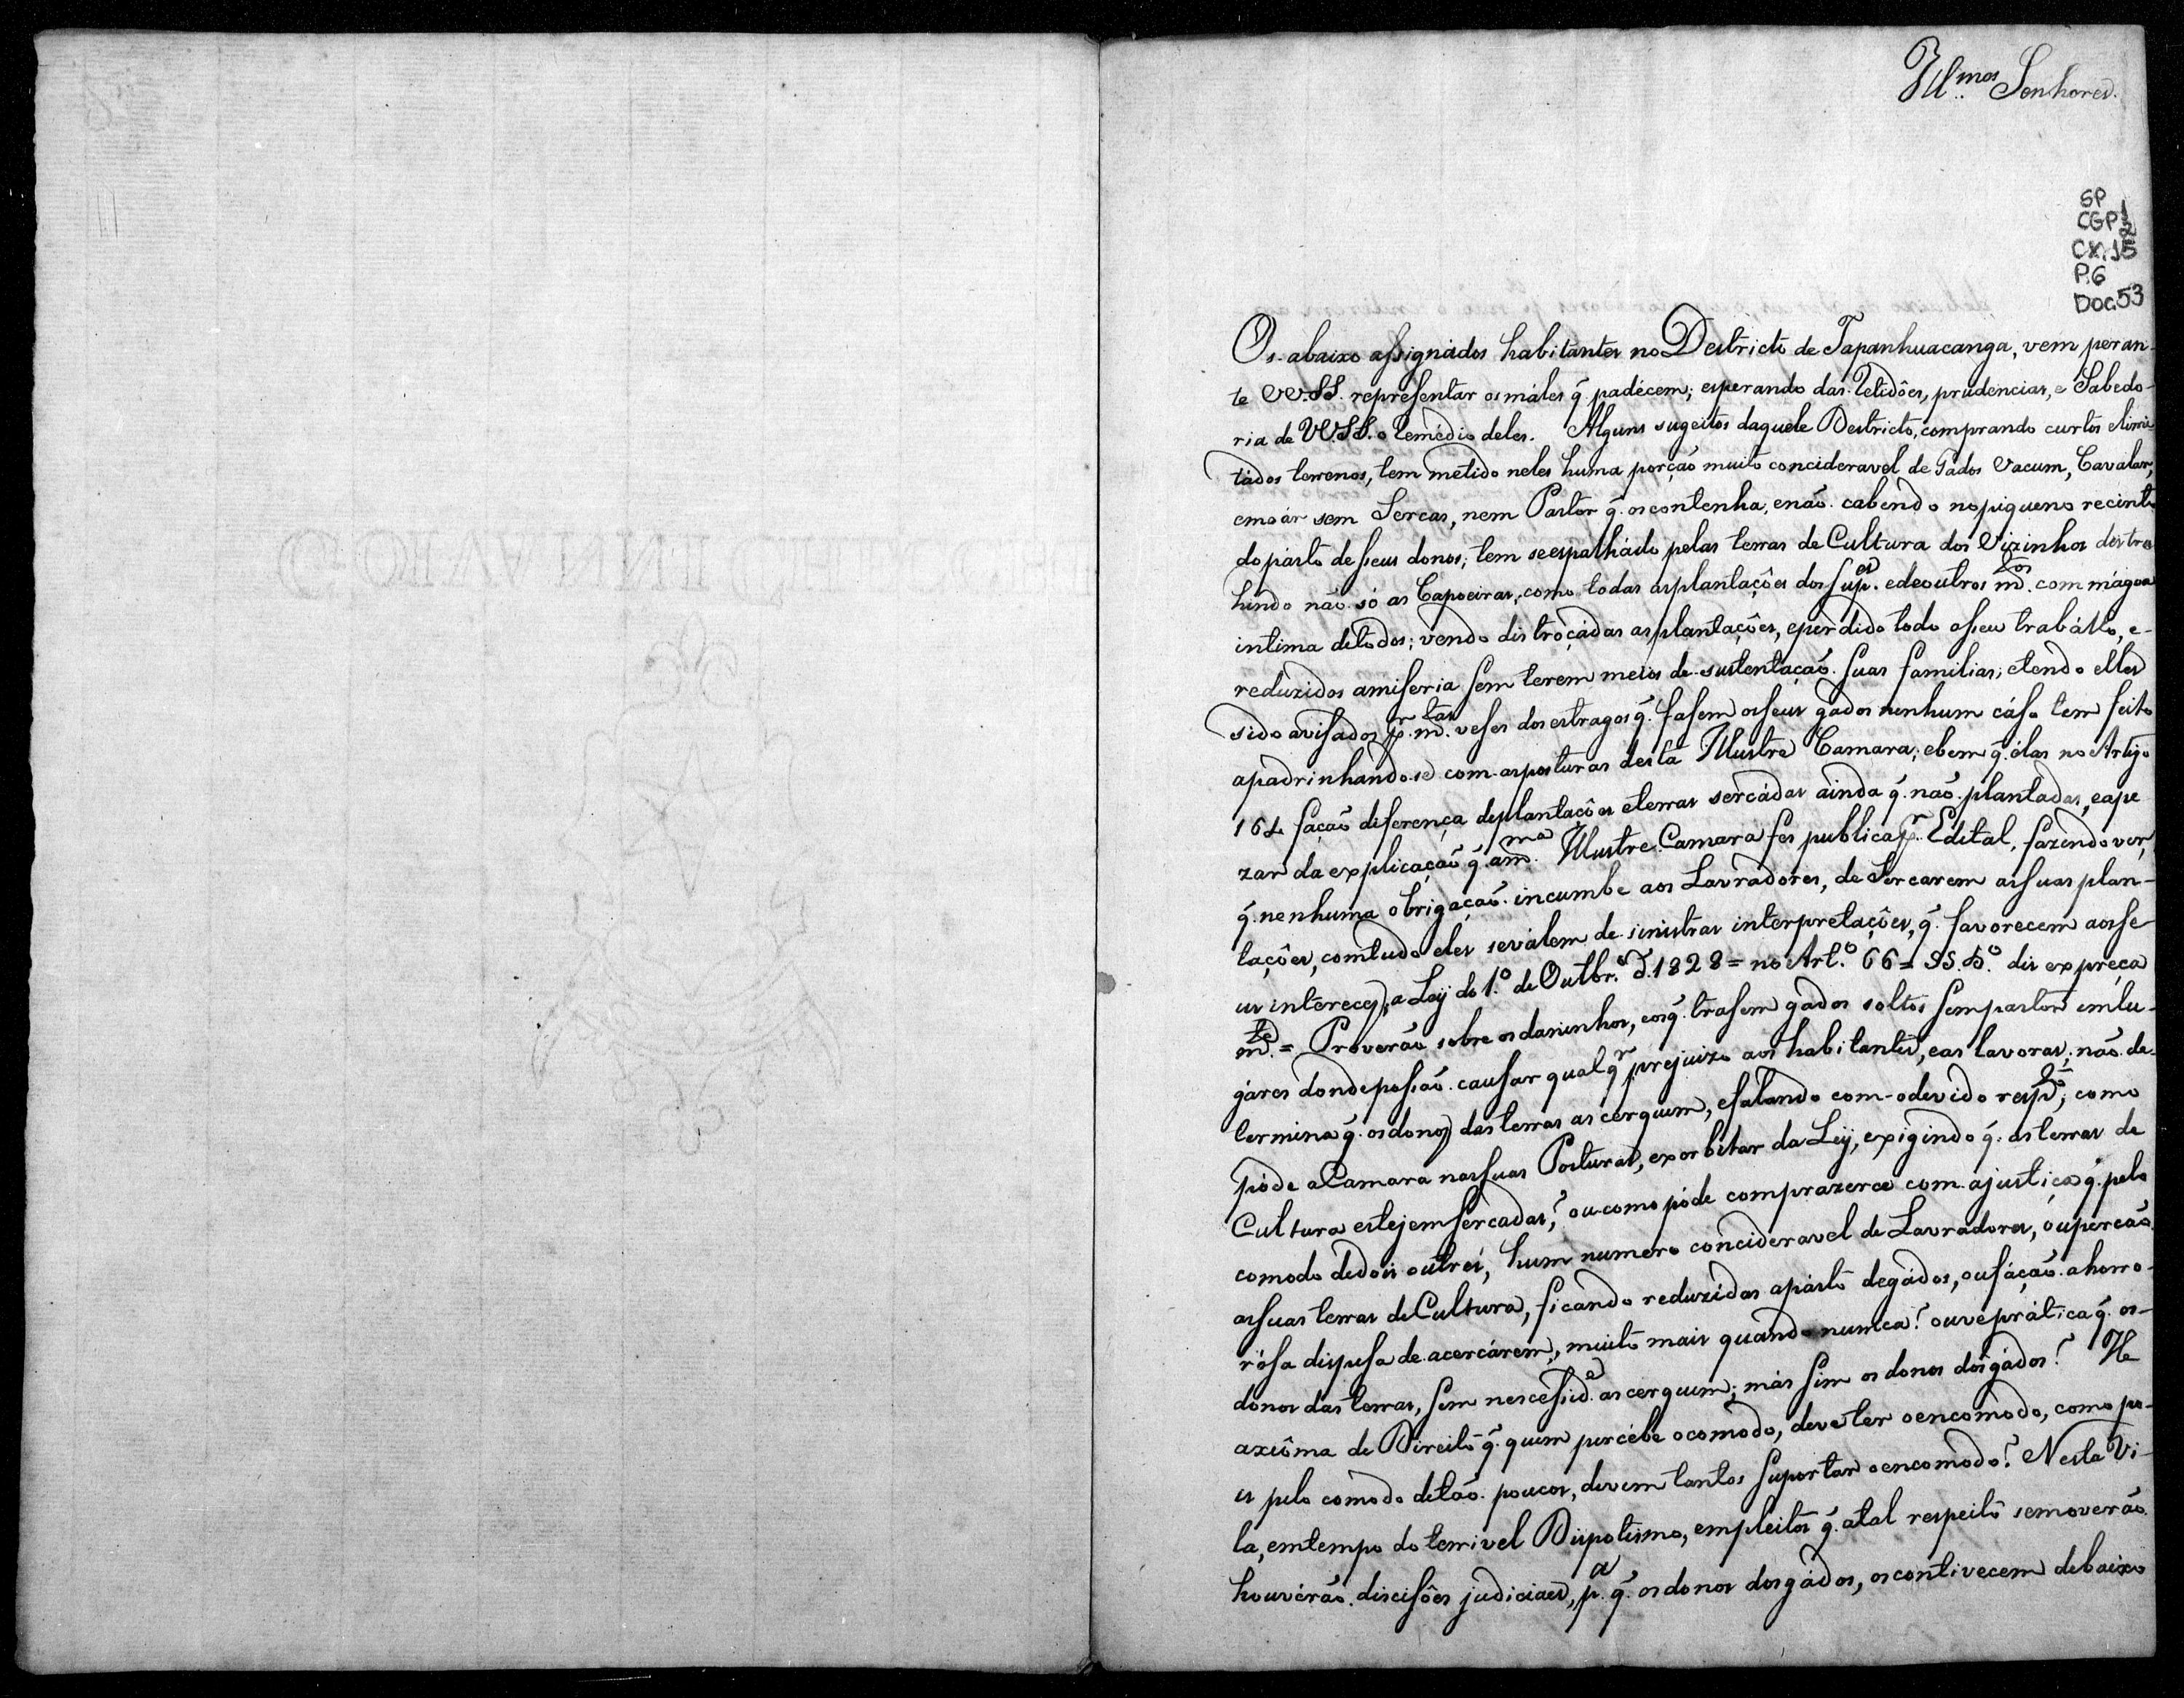 Ill.mos Senhores.
SP
CGP 1/2
CX. 15
P.6
Doc. 53
Os abaixo assignados habitantes no Destricto de Tapanhuacanga, vem peran-
te VV.SS. representar os máles q̃. padécem; esperando das Retidões, prudencias, e Sabedo-
ria de VV.SS. o Remédio deles. Alguns sugeitos daquele Destricto, comprando curtos elimi-
tados terrenos, tem metido neles huma porção muito concideravel de Gados Vacum, Cavalar,
emoár sem Sercas, nem Pastor q̃. os contenha, enão cabendo no piqueno recinto
do pásto de seus donos; tem se espalhádo pelas terras de Cultura dos Vizinhos destru
hindo não só as Capoeiras, como todas as plantações dos Sup.es e de outros m.tos com mágoa
intima de todos; vendo distroçádas as plantações, e perdido todo o seu trabálho, e-
reduzidos a miseria sem terem meios de sustentação suas familias; e tendo elles
sido avisados p.r m.tas veses dos estragos q̃. fasem os seus gados nenhum cáso tem feito
apadrinhando-se com as posturas desta Illustre Camara; e bem q̃. élas no Artigo
164 fação diferença de plantações e terras sercádas ainda q̃. não plantadas, e ape
zar da explicação q̃. a m.ma Illustre Camara fes publica p.r Edital, fazendo ver,
q̃. nenhuma obrigação incumbe aos Lavradores, de Sercarem as suas plan-
tações, comtudo eles se válem de sinistras interpretações, q̃. favorecem aos se
us intereces; a Ley do 1.º de Outbr.º d. 1828 = no Art.º 66 = §§. 5.º dis expreça
m.te = Proverão sobre os daninhos, e os q̃. trasem gados soltos sem pastor em lu-
gáres donde possão causar qualq.r prejuizo aos habitantes, e as lavoras; não de-
termina q̃. os donos das terras as cerquem, e falando com o devido resp.to; como
póde a Camara nas suas Posturas, exorbitar da Ley, exigindo q̃. as terras de
Cultura estejem sercadas? ou como póde comprazerce com a justiça q̃. pelo
comodo de dois ou tres, hum numero concideravel de Lavradores, ou percão
as suas terras de Cultura, ficando reduzidas a pásto de gádos, ou fáção a horro-
rósa dispesa de acercárem, muito mais quando numca? ouve prática q̃. os-
donos das terras, sem nescessid.e as cerquem; más sim os donos dos gádos? He
axiôma de Direito q̃. quem percébe o comodo, deve ter o encomodo, como po-
is pelo comodo de tão poucos, devem tantos suportar o encomodo? Nesta Vi-
la, em tempo do terrivel Dispotismo, em pleitos q̃. a tal respeito se moverão
houvérão discisões judiciaes, p.a q̃. os donos dos gádos, os contivecem debaixo